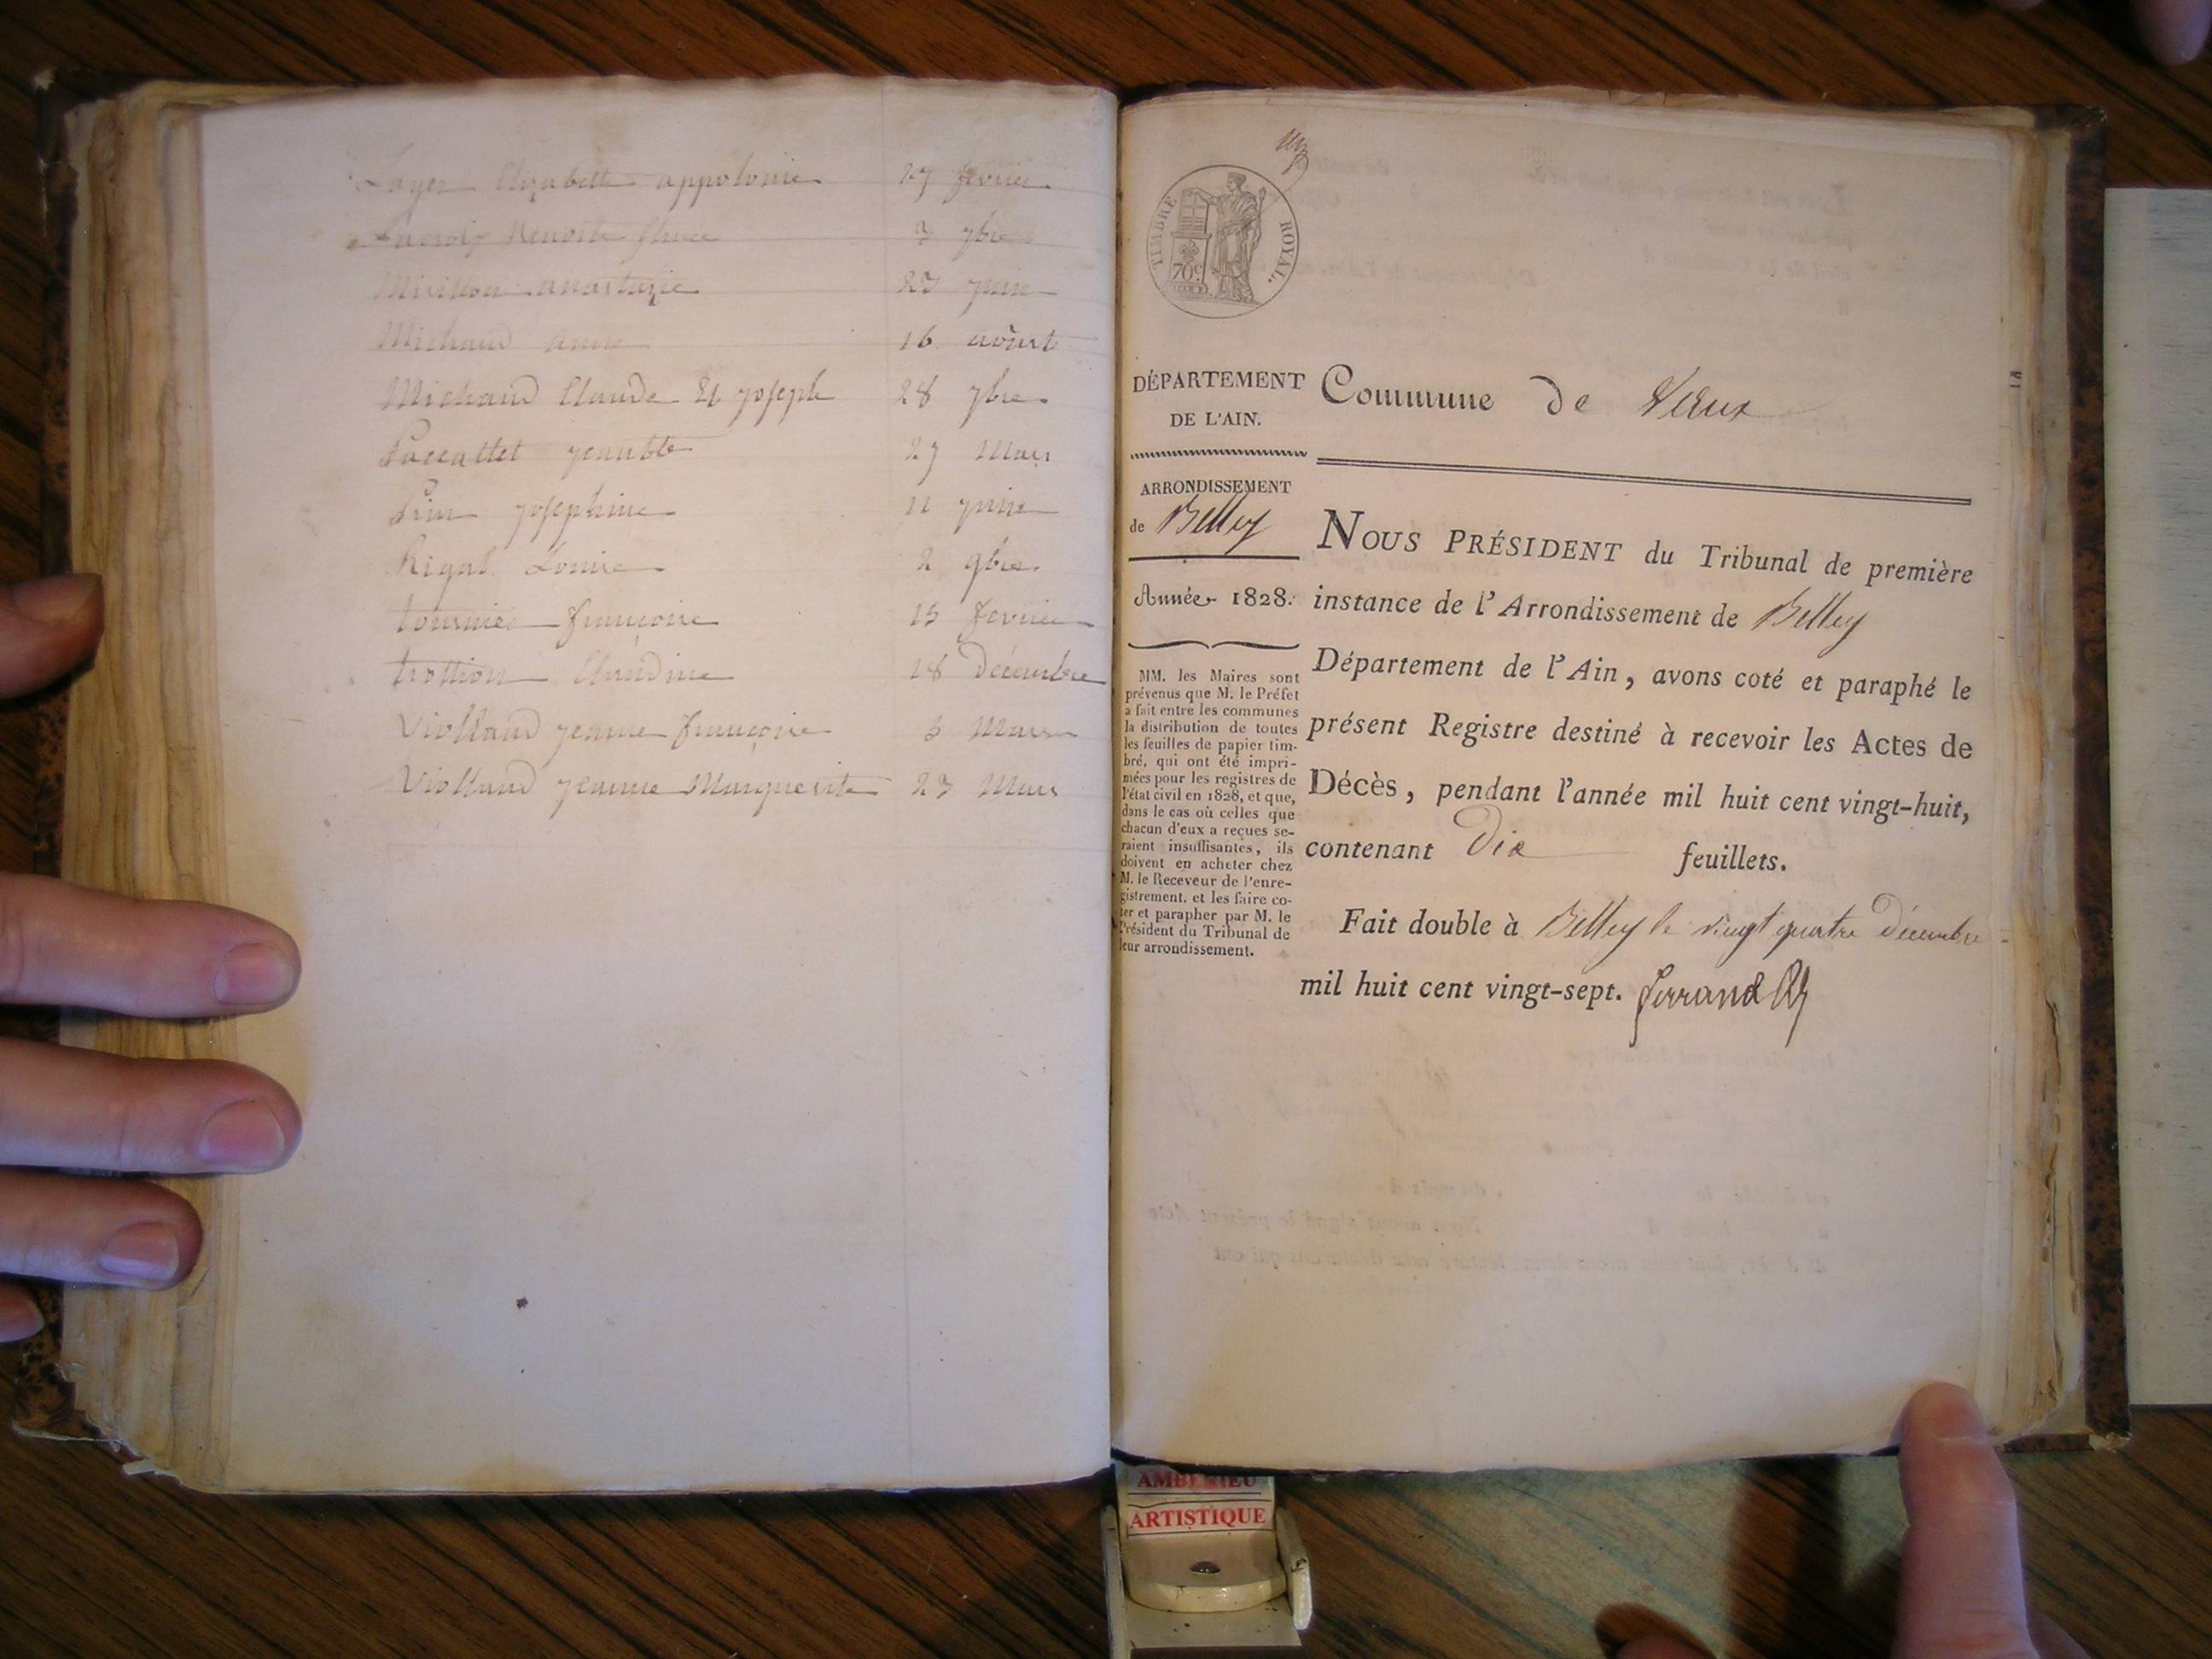 Layer Elizabeth appolonie 27 fevrier
3 7bre
anastasie 23 juin
Michaud anne 16 aôust
Michaud Claude et joseph 28 7bre.
Paccallet 27 Mars
josephine 11 juin
Rigal Louise 2 9bre.
tournier françoise 15 fevrier
trottion Claudine 18 decembre
Viollaud jeanne françoise 3 Mars
Viollaud jeanne Marguerite 23 Mars
un
TIMBRE ROYAL.
70c
DÉPARTEMENT
DE L'AIN.
ARRONDISSEMENT
de Belley
Année 1828.
MM. les Maires sont
prévenus que M. le Préfet
a fait entre les communes
la distribution de toutes
les feuilles de papier tim-
bré, qui ont été impri-
mées pour les registres de
l'état civil en 1828, et que,
dans le cas où celles que
chacun d'eux a reçues se-
raient insuffisantes, ils
doivent en acheter chez
M. le Receveur de l'enre-
gistrement, et les faire co-
ter et parapher par M. le
Président du Tribunal de
leur arrondissement.
Commune de Vaux
NOUS PRÉSIDENT du Tribunal de première
instance de l'Arrondissement de Belley
Département de l'Ain, avons coté et paraphé le
présent Registre destiné à recevoir les Actes de
Décès, pendant l'année mil huit cent vingt-huit,
contenant Dix feuillets.
Fait double à Belley le vingt quatre Décembre
mil huit cent vingt-sept. ferrand
AMBERIEU
ARTISTIQUE